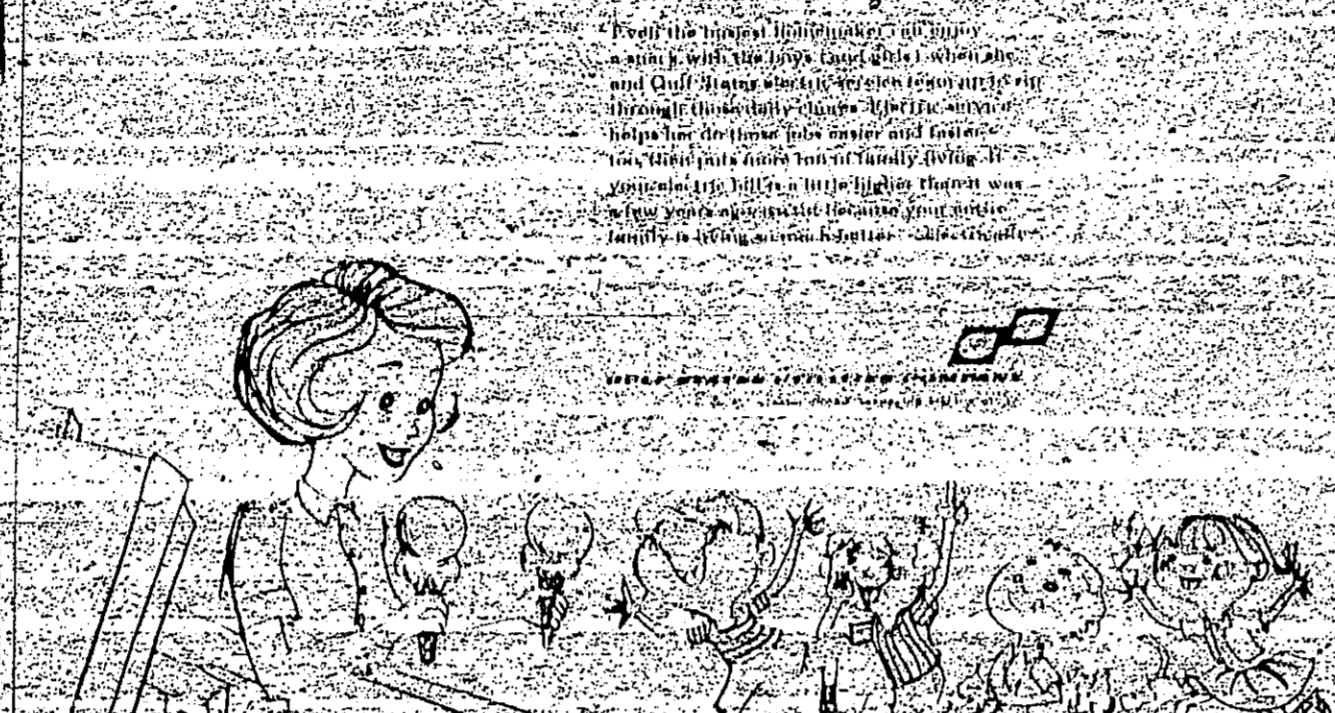 Even the busiest homemaker can enjoy
a snack with the boys (and girls) when she
and Gulf States electric service team up to zip
through those daily chores. Electric service
helps her do those jobs easier and faster
too, then puts more fun in family living. If
your electric bill is a little higher than it was
a few years ago isn't it because your entire
family is living so much better electrically
GULF STATES UTILITIES COMPANY